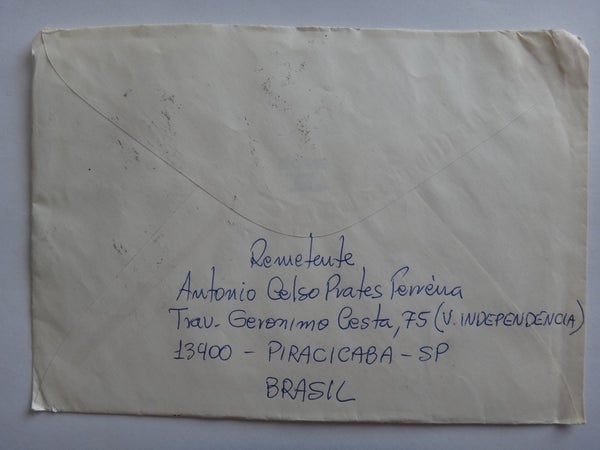 Remetente
Antonio Celso Prates Ferréria
Trav. Geronimo Cesta, 75 (V. INDEPENDENCIA)
13400 - PIRACICABA - SP
BRASIL